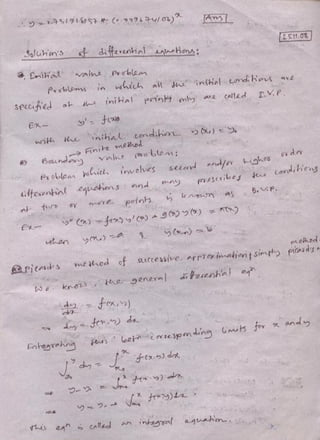 Ans
Solutions of differential equations:
Initial value Problem
Problems in which all the initial conditions are
specified at the initial point only are called I.V.P.
Ex— y' = f(x)
with the initial condition y(x₀) = y₀
→ Finite method
Boundary value problem:
Problem which involves second and/or higher order
differential equations and may prescribes the conditions
at two or more points is known as B.V.P.
Ex— y"(x) = f(x) y'(x) + g(x) y(x) = r(x)
when y(x₀) = a & y(xₙ) = b
Picard's method of successive approximation, simply picard's method.
We know, the general differential eqⁿ
dy/dx = f(x,y)
⇒ dy = f(x,y) dx
Integrating this betⁿ corresponding limits for x and y
∫ dy = ∫ f(x,y) dx
⇒ y - y₀ = ∫ f(x,y) dx
⇒ y = y₀ + ∫ f(x,y) dx
this eqⁿ is called an integral equation.